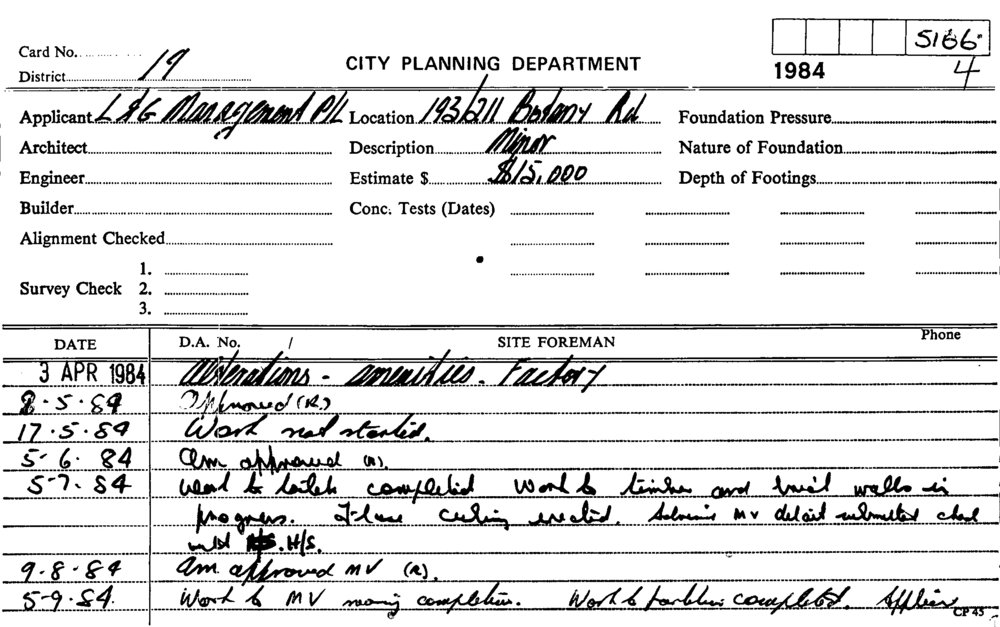 Card No. 5166.
District 19 CITY PLANNING DEPARTMENT 1984 4
Applicant L & G Management P/L Location 193/211 Botany Rd Foundation Pressure
Architect Description Minor Nature of Foundation
Engineer Estimate $ $15,000 Depth of Footings
Builder Conc. Tests (Dates)
Alignment Checked
1.
Survey Check 2.
3.
DATE D.A. No. / SITE FOREMAN Phone
3 APR 1984 Alterations - amenities. Factory
8.5.84 Approved (R)
17.5.84 Work not started.
5-6.84 Am approved (R).
5-7.84 Work to toilets completed Work to timber and brick walls in
progress. ceiling erected. MV detail submitted
H/S.
9-8-84 Am approved MV (R).
5-9.84. Work to MV nearing completion. Work to partition completed.
CP 45